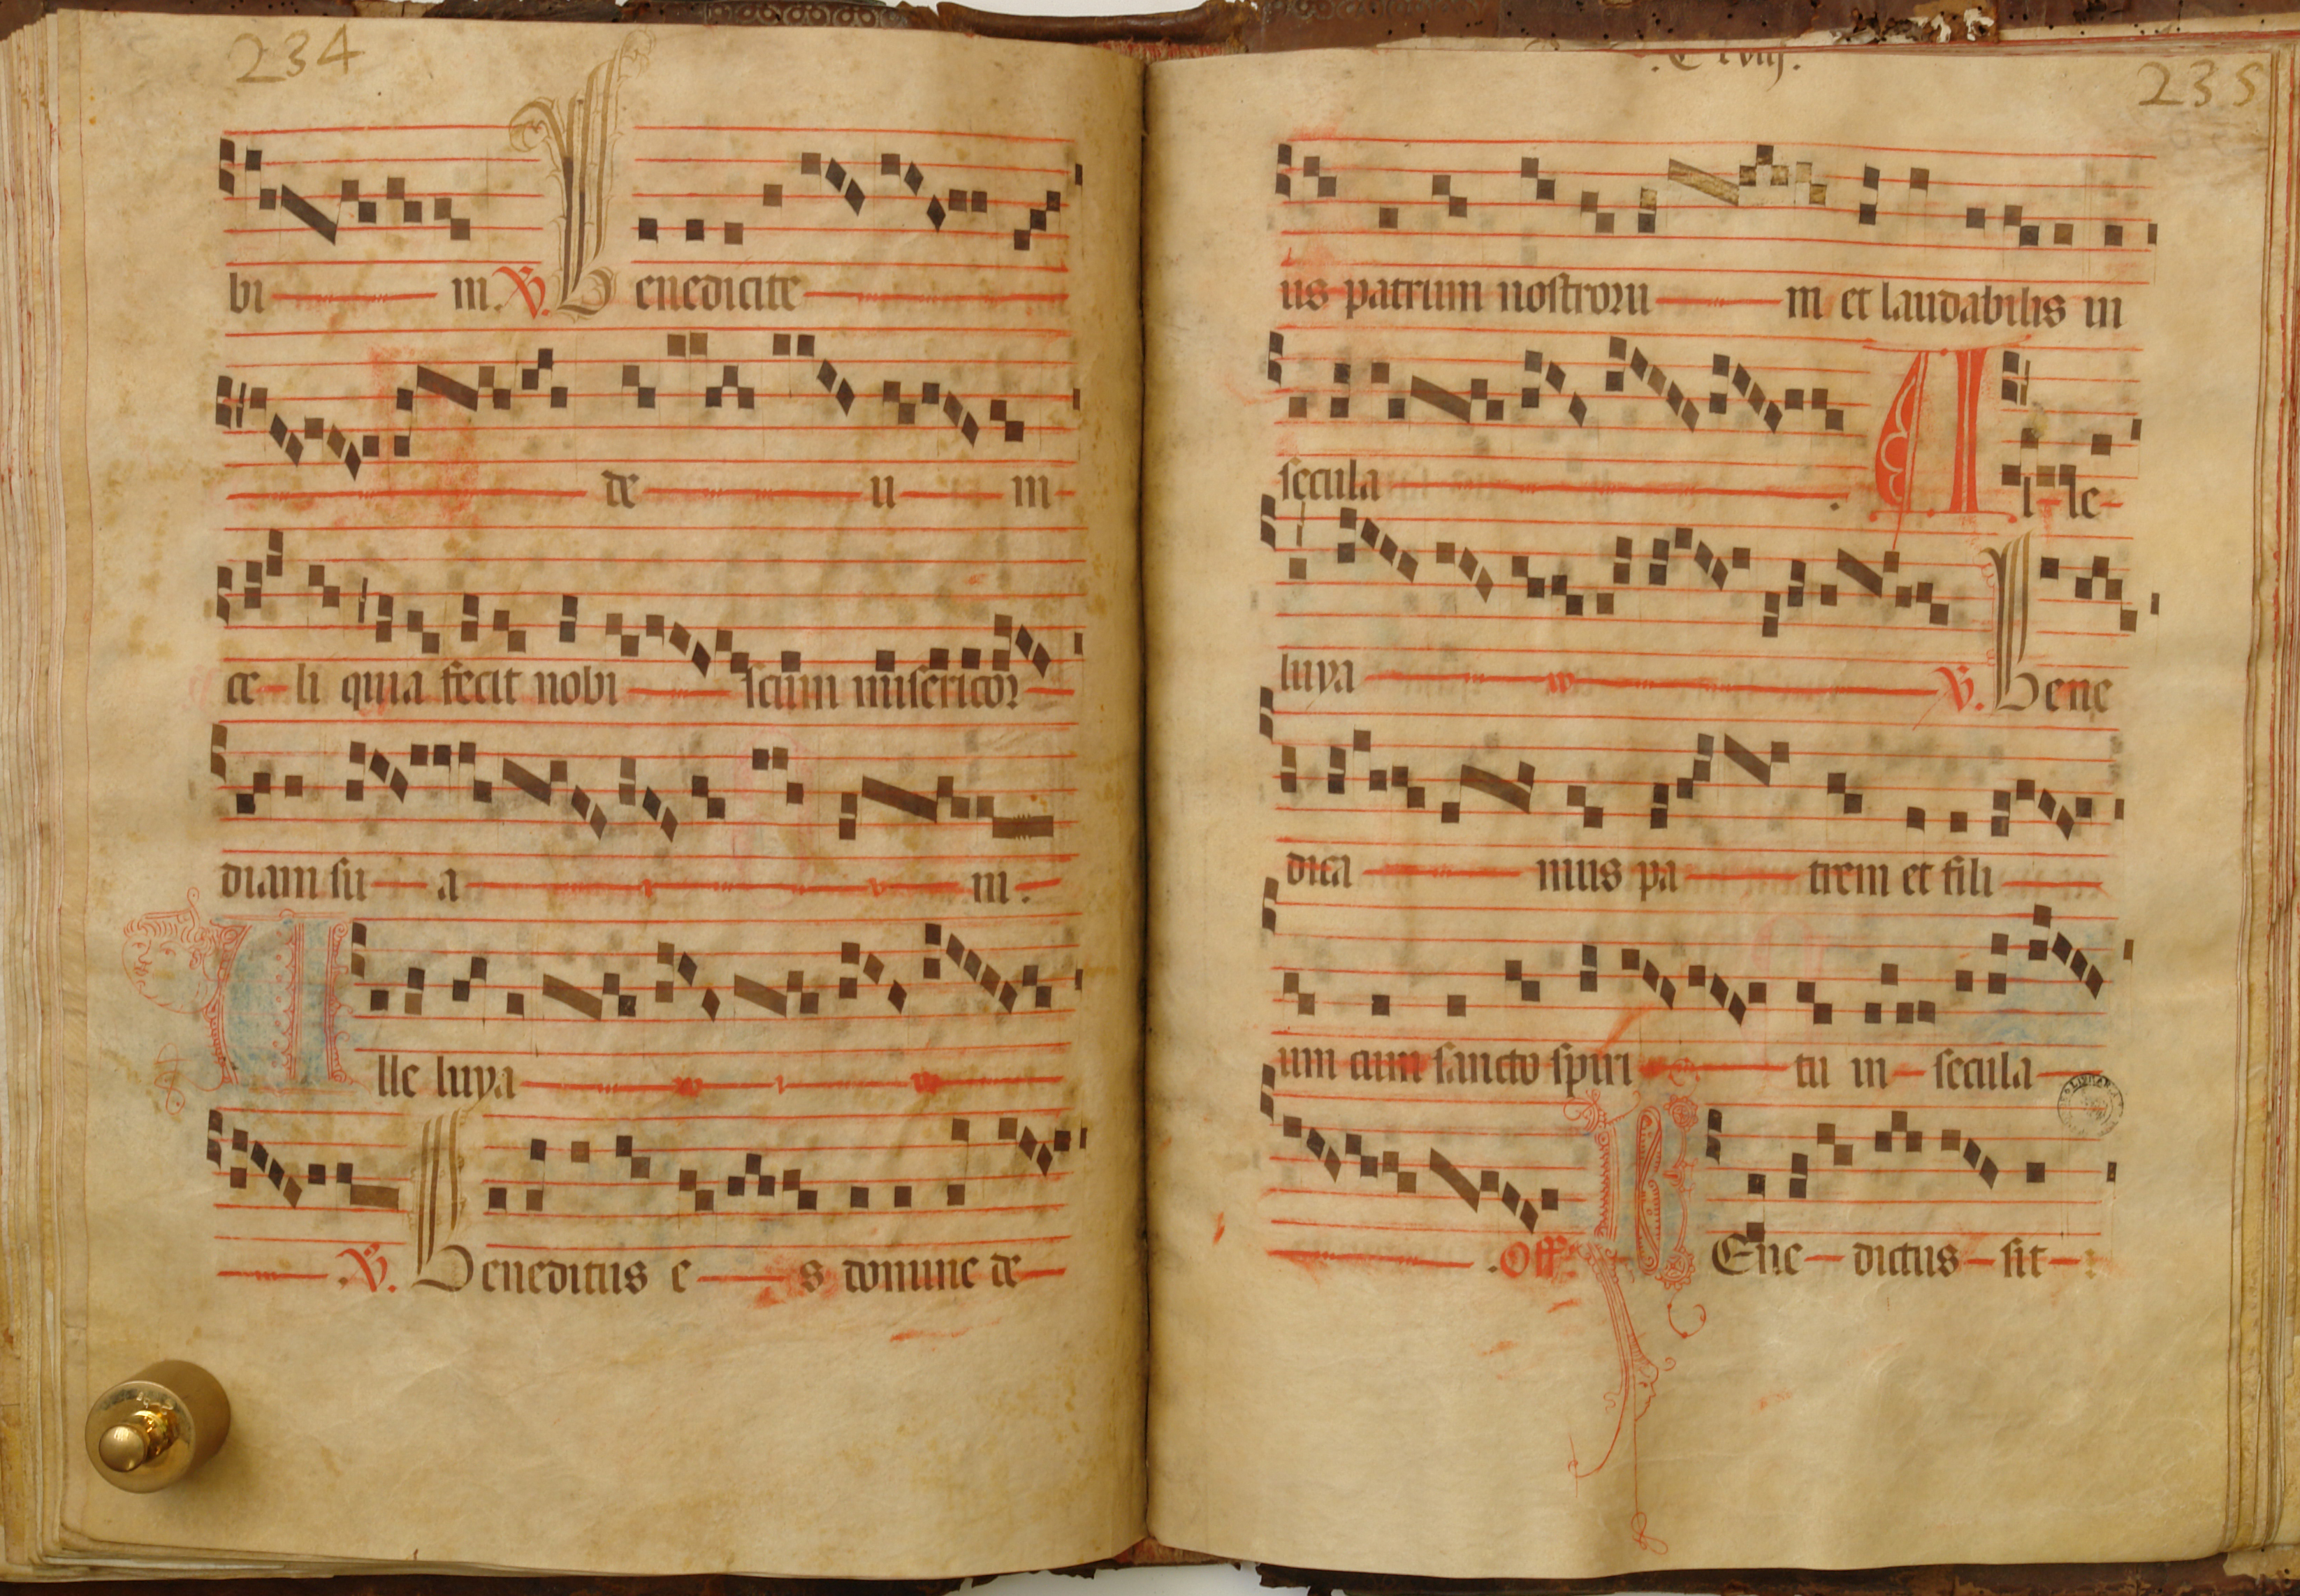 234
bi m. V. Benedicite
de u m
ce li quia fecit nobi scum misericor
diam su a m.
Alle luya
V. Beneditus e s domine de
235
us patrum nostroru m et laudabilis in
secula . Al le
luya V. Bene
dica mus pa trem et fili
um cum sancto spiri tu in secula
.Off. BEne dictus sit